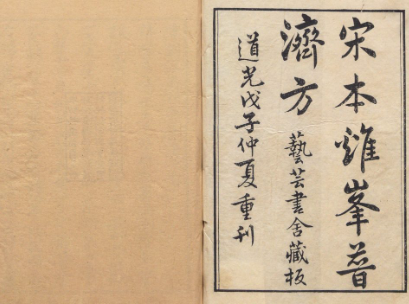 宋本雞峯普
濟方 藝芸書舍藏板
道光戊子仲夏重刊